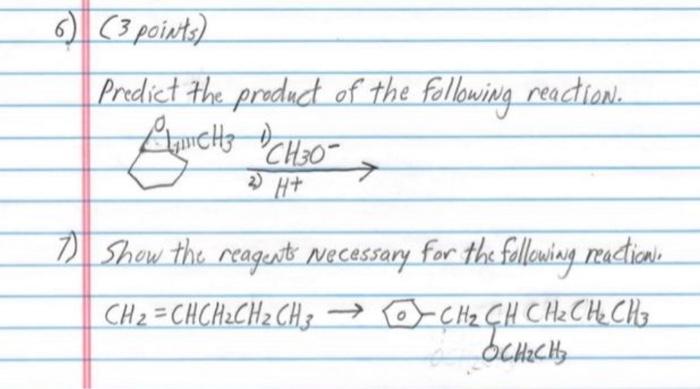 6) (3 points)
Predict the product of the following reaction.
O CH3 1) CH3O-
2) H+
7) Show the reagents necessary for the following reaction.
CH2=CHCH2CH2CH3 → -CH2CHCH2CH2CH3
OCH2CH3